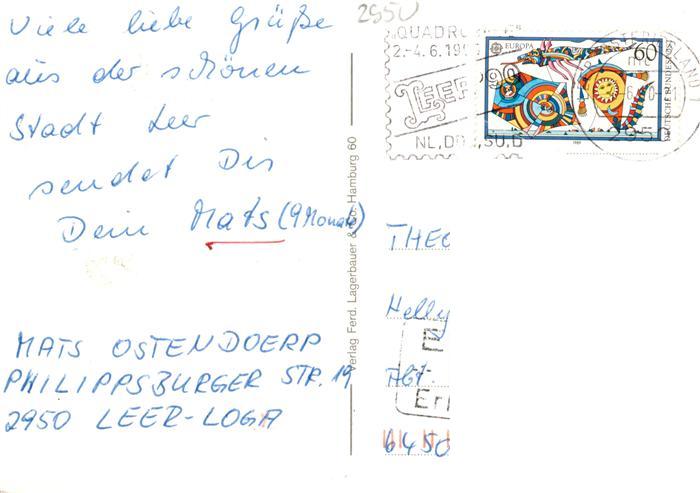 2950
Viele liebe Grüße
aus der schönen
Stadt Leer
sendet Dir
Dein Mats (9 Monate)
MATS OSTENDOERP
PHILIPPSBURGER STR. 19
2950 LEER-LOGA
Verlag Ferd. Lagerbauer & Co. Hamburg 60
QUADRO
2.-4.6.19
LEER
90
NL, D
S.U.D
EUROPA
60
DEUTSCHE BUNDESPOST
1989
OSTFRIESLAND
THEO
Helly
Abt.
E
Eri
6450